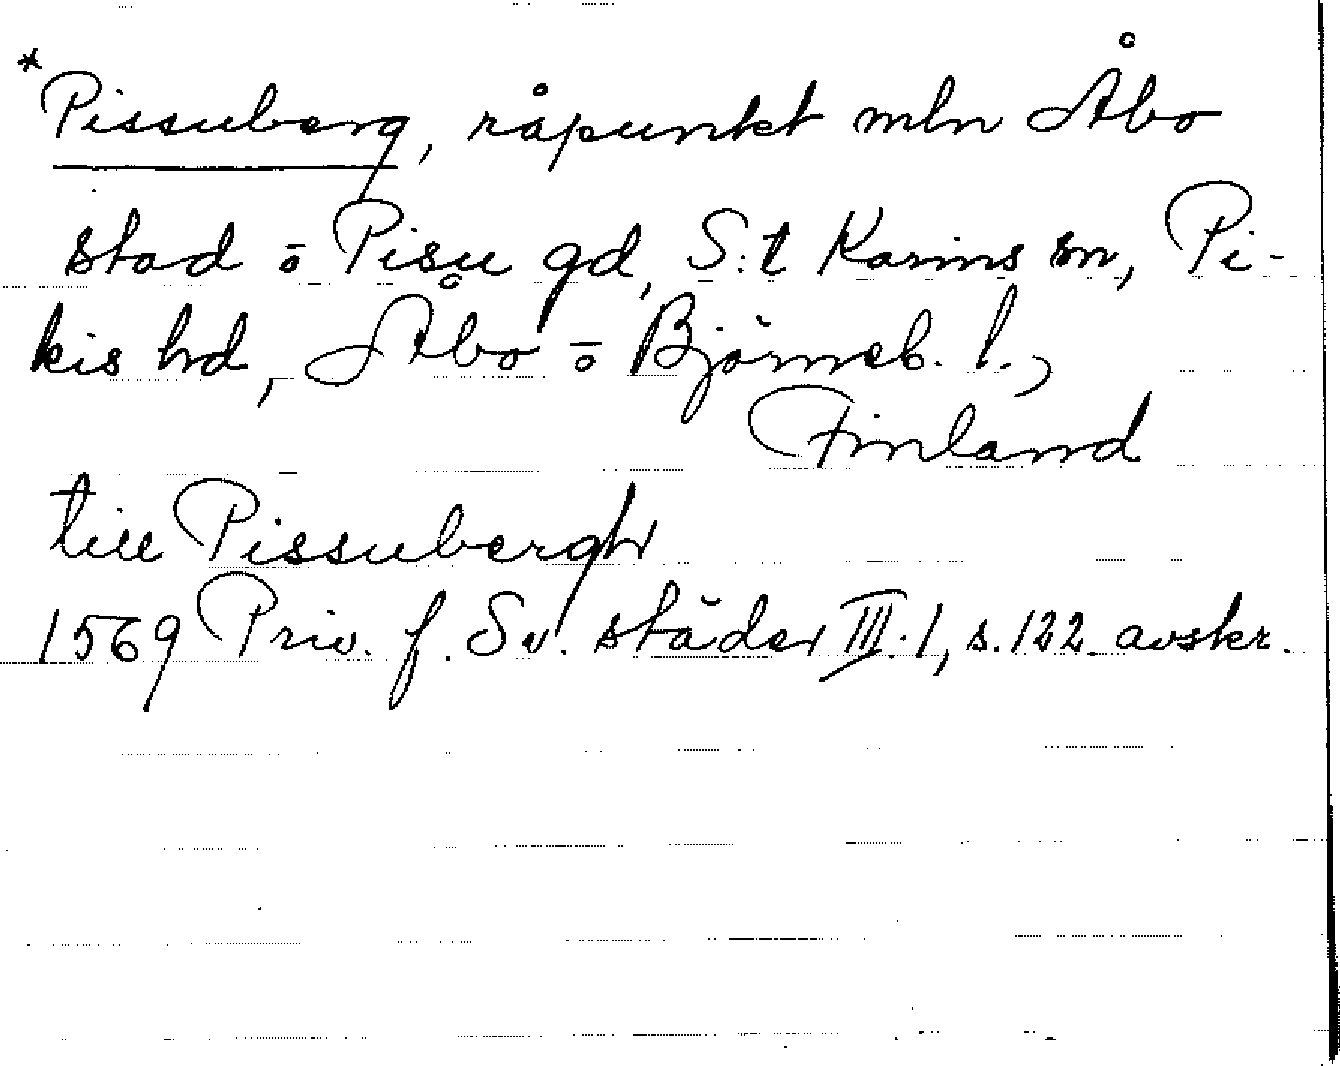 *Pissuberg, råpunkt mln Åbo
stad o Pisu gd, S:t Karins sn, Pi-
kis hd, Åbo o Björneb. l.,
Finland
till Pissubergh
1569 Priv. f. Sv. städer III.1, s. 122 avskr.